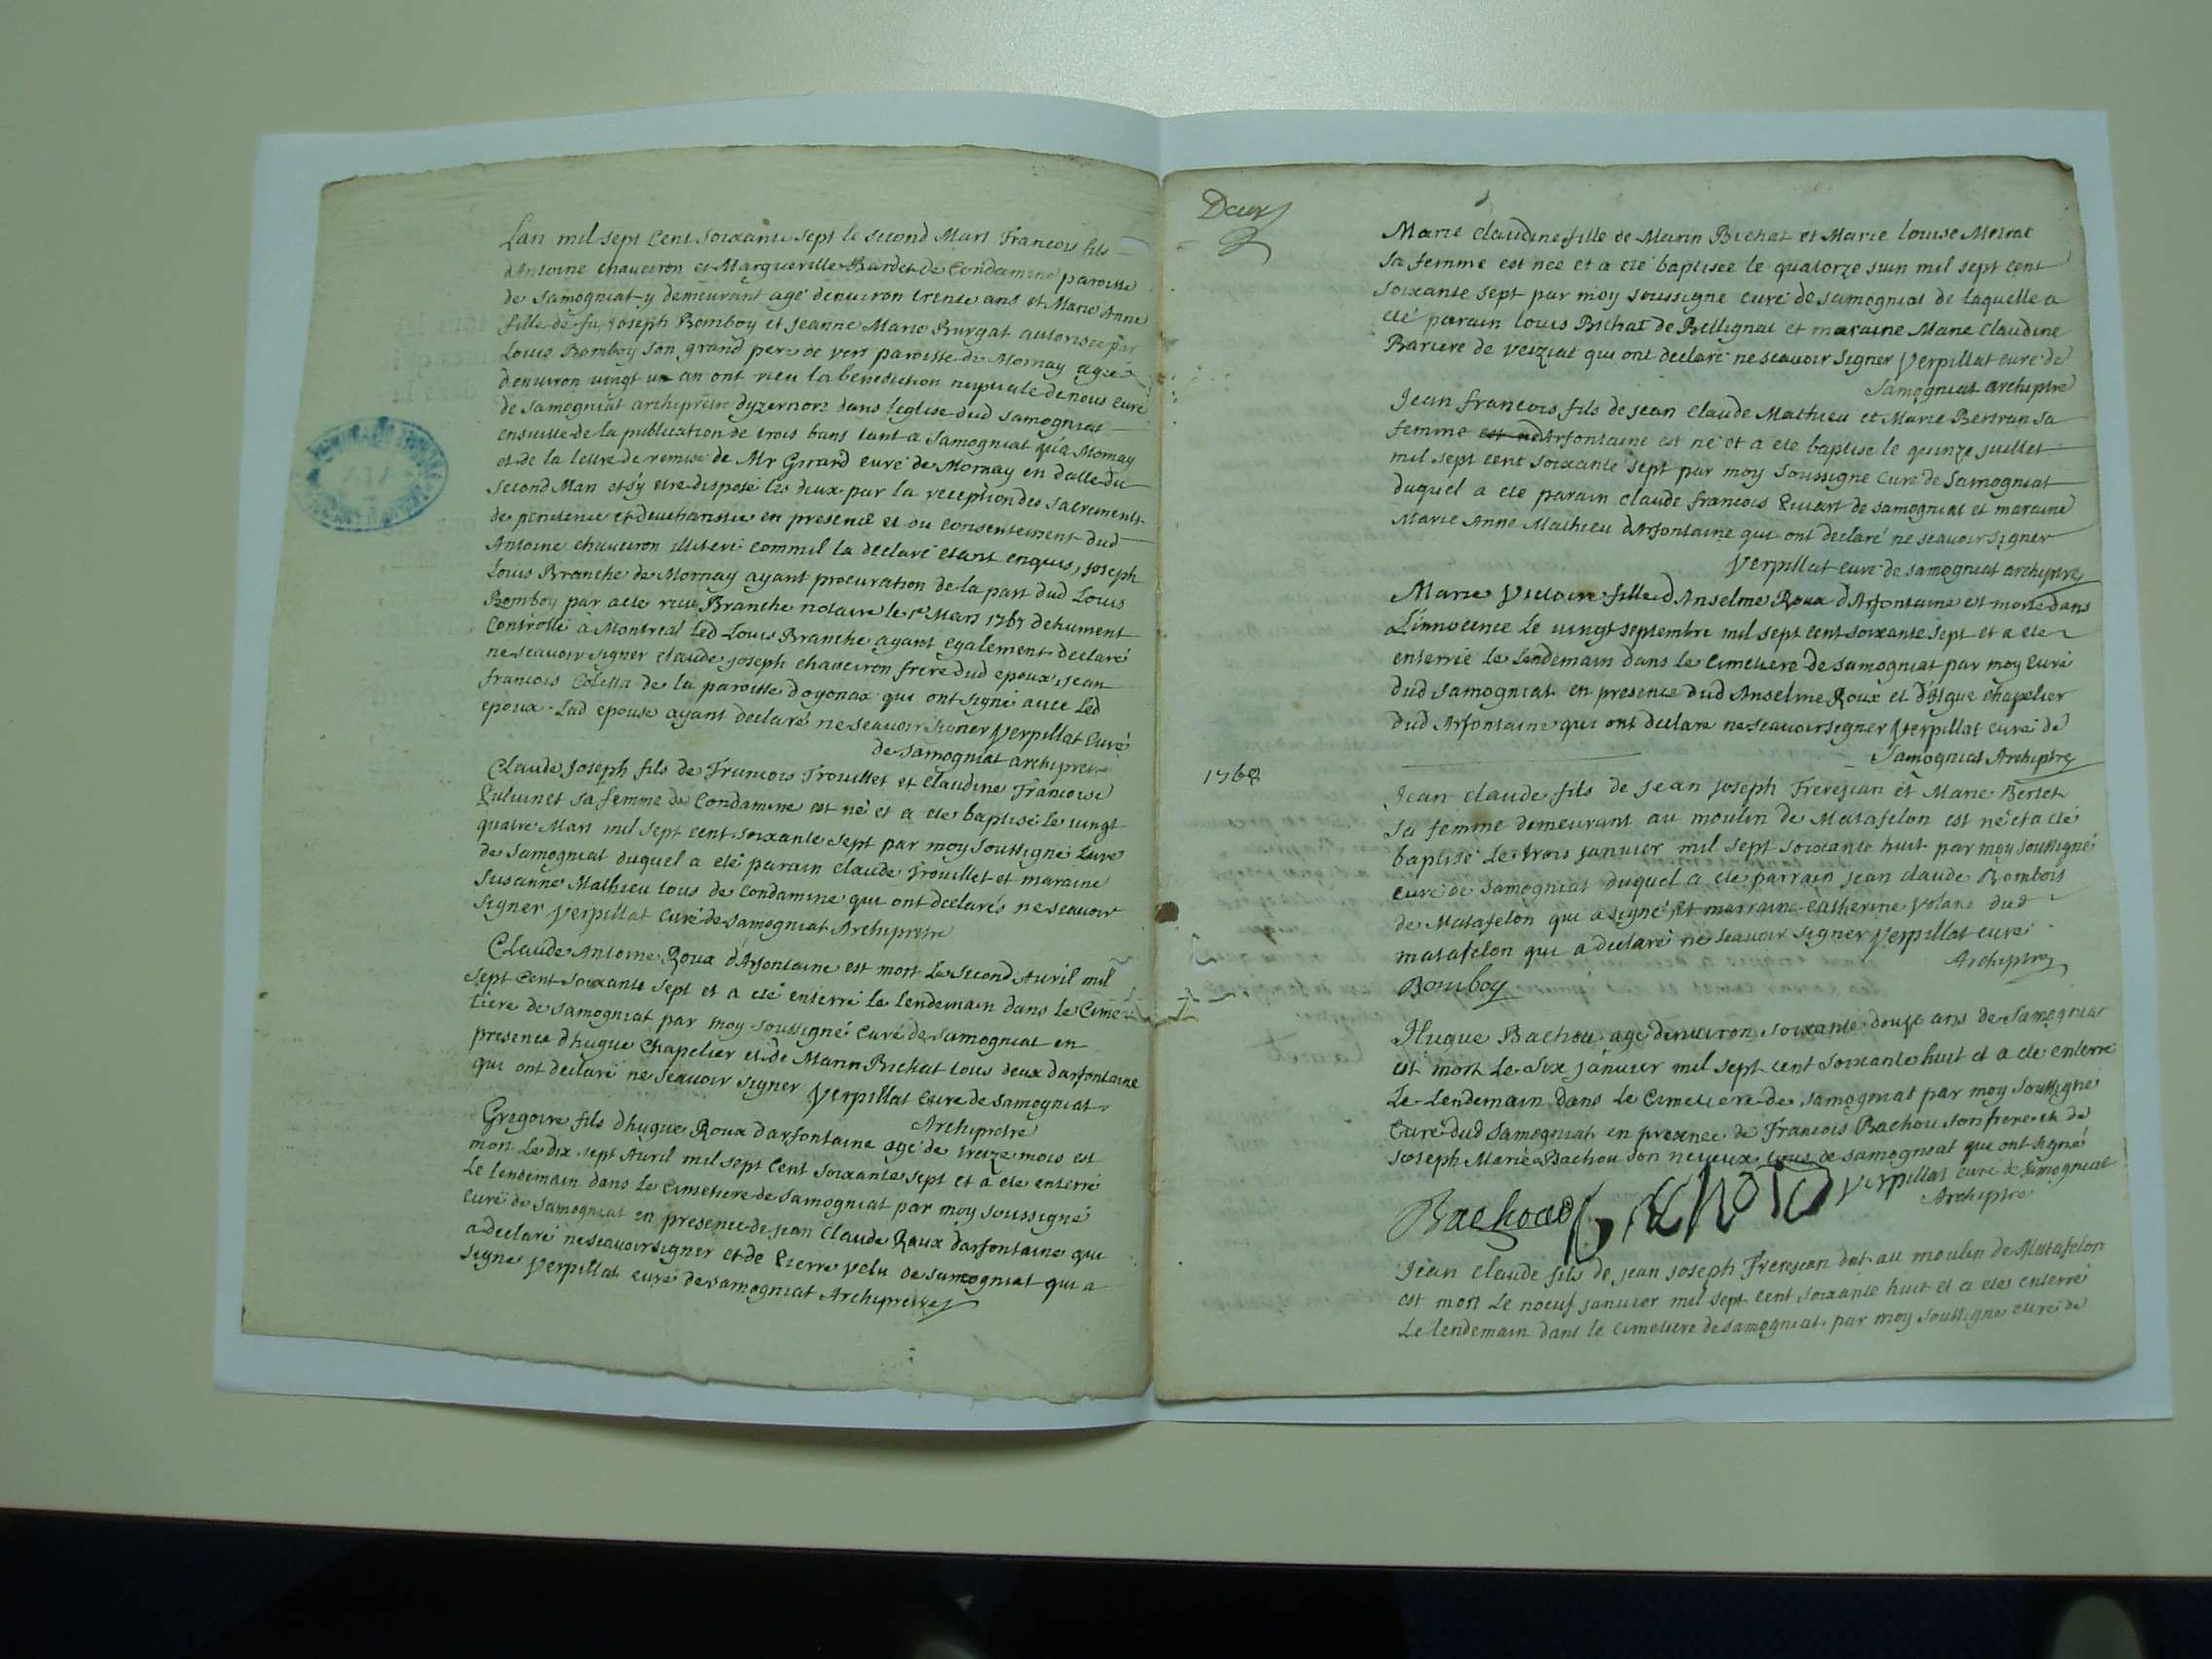 Lan mil sept Cent Soixante sept le second Mars Francois fils
dAntoine chaveiron et Marguerille Bardet de Condamine paroisse
de Samogniat y demeurant agé denuiron trente ans et Marie Anne
fille de fu Joseph Bomboy et Jeanne Marie Burgat autorisée par
Louis Bomboy son grand pere de vers paroisse de Mornay agée
denuiron uingt un an ont reçu la benediction nuptiale de nous curé
de Samogniat archiprêtre dyzernore dans leglise dud Samogniat
ensuitte de la publication de trois bans tant a Samogniat qu'a Mornay
et de la lettre de remise de Mr Girard curé de Mornay en datte du
second Mars et s'y etre disposé les deux par la reception des Sacrements
de penitence et deucharistie en presence et du consentement dud
Antoine chaveiron illiteré comme il la declaré etant enquis, Joseph
Louis Branche de Mornay ayant procuration de la part dud Louis
Bomboy par acte reçu Branche notaire le 1er Mars 1767 dehument
Controllé à Montreal Led Louis Branche ayant egalement declaré
ne scavoir signer claude joseph chaveiron frere dud epoux, jean
francois Coletta de la paroisse doyonax qui ont signé avec Led
epoux. Lad epouse ayant declaré ne scavoir signer Verpillat Curé
de Samogniat archipretre
Claude Joseph fils de Francois Trouillet et Claudine Francoise
sa femme de Condamine est né et a ete baptisé le uingt
quatre Mars mil sept cent soixante sept par moy soussigné Curé
de Samogniat duquel a eté parain claude Trouillet et maraine
Susanne Mathieu tous de Condamine qui ont declarés ne scavoir
signer Verpillat Curé de Samogniat Archipretre
Claude Antoine Roux d'Arfontaine est mort Le Second Auril mil
sept Cent soixante sept et a eté enterré le lendemain dans le Cime
tière de Samogniat par moy soussigné Curé de Samogniat en
presence dhugue Chapelier et de Marin Bichat tous deux darfontaine
qui ont declaré ne scavoir signer Verpillat Curé de Samogniat
Archipretre
Gregoire fils dhugue Roux darfontaine agé de treize mois est
mort Le dix sept Auril mil sept Cent soixante sept et a ete enterré
Le lendemain dans le Cimetiere de Samogniat par moy soussigné
curé de Samogniat en presence de jean Claude Roux darfontaine qui
a declaré ne scavoir signer et de Pierre velu de Samogniat qui a
signé Verpillat curé de Samogniat Archipretre
Deux
Marie Claudine fille de Marin Bichat et Marie Louise Moirat
sa femme est née et a eté baptisée le quatorze juin mil sept cent
soixante sept par moy soussigné curé de Samogniat de laquelle a
eté parain louis Bichat de Bellignat et maraine Marie Claudine
Bariere de veiziat qui ont declaré ne scavoir signer Verpillat curé de
Samogniat archiptre
Jean francois fils de jean claude Mathieu et Marie Bertran sa
femme est né dArfontaine est né et a ete baptisé le quinze juillet
mil sept cent soixante sept par moy soussigné Curé de Samogniat
duquel a eté parain claude francois de Samogniat et maraine
Marie Anne Mathieu dArfontaine qui ont declaré ne scavoir signer
Verpillat curé de Samogniat archiptre
Marie Victoire fille d'Anselme Roux d'Arfontaine est morte dans
L'innocence le uingt septembre mil sept cent soixante sept et a ete
enterrée le lendemain dans le Cimetiere de Samogniat par moy Curé
dud Samogniat en presence dud Anselme Roux et d'hugue Chapelier
dud Arfontaine qui ont declaré ne scavoir signer Verpillat curé de
Samogniat Archiptre
1768
Jean claude fils de jean joseph Frerejean et Marie Bertet
sa femme demeurant au moulin de Matafelon est né et a eté
baptisé Le trois janvier mil sept soixante huit par moy soussigné
curé de Samogniat duquel a ete parrain jean claude Bombois
de Matafelon qui a signé et marraine Catherine Volano dud
matafelon qui a declaré ne scavoir signer Verpillat curé
Archiptre
Bomboy
Hugue Bachou agé denuiron soixante douze ans de Samogniat
est mort Le Six janvier mil sept cent soixante huit et a ete enterré
Le Lendemain dans Le Cimetiere de Samogniat par moy soussigné
Curé dud Samogniat en presence de Francois Bachou son frere et de
Joseph Marie Bachou son neveux tous de Samogniat qui ont signé
Verpillat curé de Samogniat
Archiptre
Bachoud
Jean claude fils de jean joseph Frerejean dat au moulin de Matafelon
est mort Le noeuf janvier mil sept cent soixante huit et a eté enterré
Le lendemain dans le cimetiere de Samogniat par moy soussigné curé de